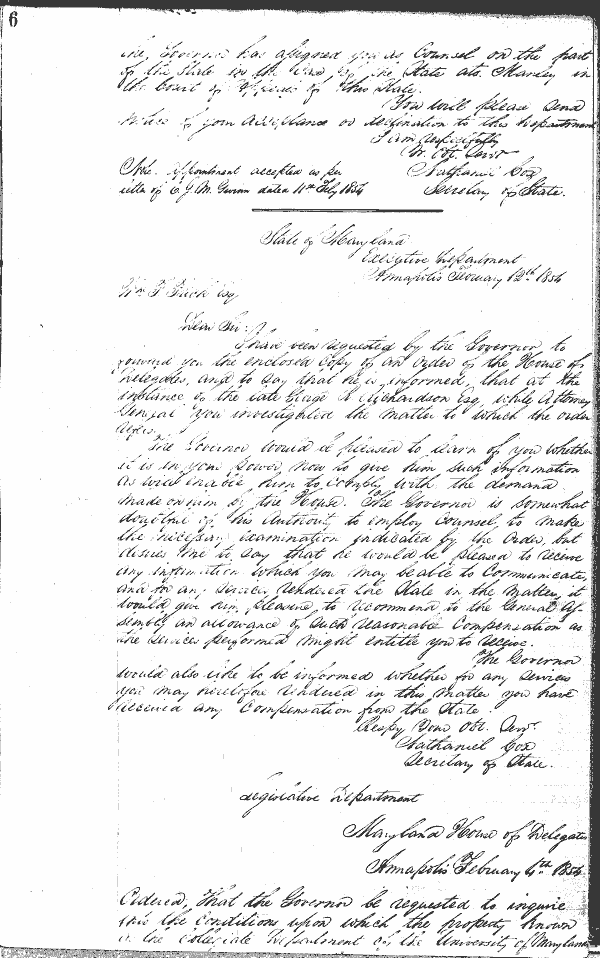 6
the Governor has assigned you as Counsel on the part
of the State in the Case of the State ats. Manley in
the Court of Appeals of this State.
You will please send
notice of your acceptance or declination to this department
I am respectfully
Yr. Obt. Servt
Nathaniel Cox
Secretary of State.
Note. Appointment accepted as per
letter of C. J. M. Gwinn dated 11th Feby 1854
State of Maryland
Executive Department
Annapolis February 12th 1854
Wm F Frick Esq
Dear Sir:
I have been requested by the Governor to
forward you the enclosed copy of an order of the House of
Delegates, and to say that he is informed, that at the
instance of the late George R Richardson Esq, while Attorney
General you investigated the matter to which the order
refers.
The Governor would be pleased to learn of you whether
it is in your power now to give him such information
as will enable him to comply with the demand
made on him by the House. The Governor is somewhat
doubtful of his Authority to employ Counsel, to make
the necessary examination indicated by the Order, but
desires me to say that he would be pleased to receive
any information which you may be able to Communicate,
and for any services rendered the State in the matter, it
would give him pleasure to recommend to the General As-
sembly an allowance of such reasonable Compensation as
the services performed might entitle you to receive.
The Governor
would also like to be informed whether for any services
you may heretofore rendered in this matter you have
received any Compensation from the State.
Respy Your Obt. Servt.
Nathaniel Cox
Secretary of State.
Legislative Department
Maryland House of Delegates
Annapolis February 4th 1854
Ordered, That the Governor be requested to inquire
into the Conditions upon which the property known
as the Collegiate Department of the University of Maryland